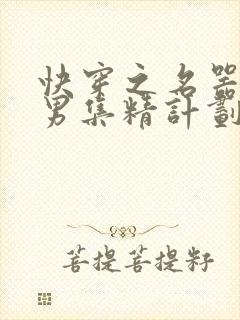 快穿之名器
男集精計劃
菩提菩提籽